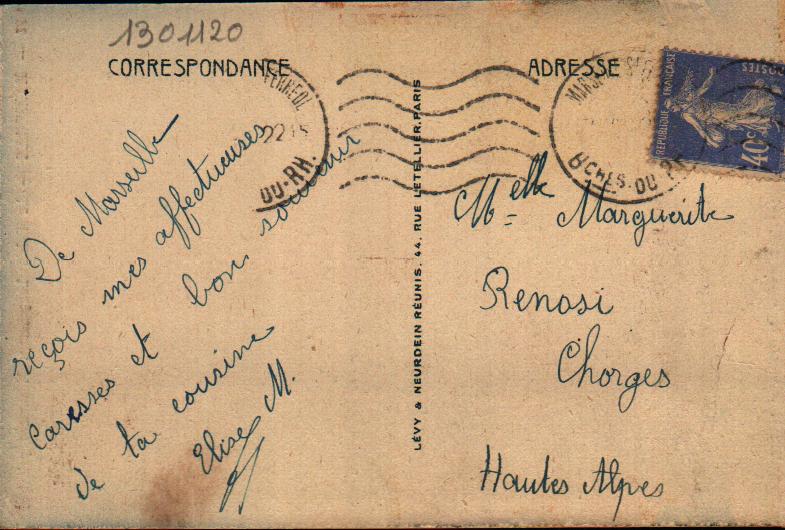 1301120
CORRESPONDANCE
ADRESSE
FERREOL
22 15
DU-RH.
BCHES-DU
REPUBLIQUE FRANÇAISE
POSTES
40c
De Marseille
reçois mes affectueuses
Caresses et bon souvenir
de ta cousine
Elise M.
LÉVY & NEURDEIN RÉUNIS, 44, RUE LETELLIER, PARIS
Melle Marguerite
Renosi
Chorges
Hautes Alpes